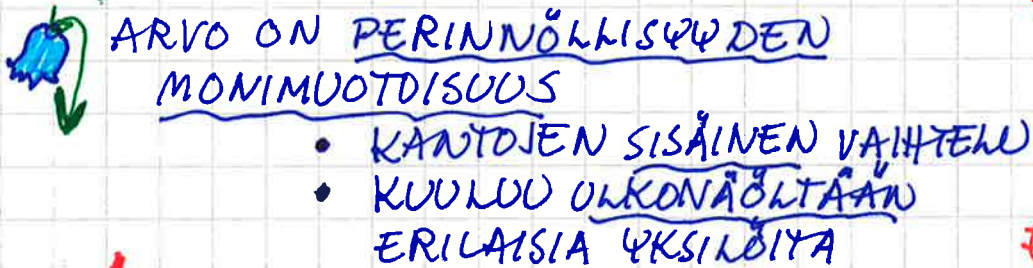 ARVO ON PERINNÖLLISYYDEN
MONIMUOTOISUUS
• KANTOJEN SISÄINEN VAIHTELU
• KUULUU ULKONÄÖLTÄÄN
ERILAISIA YKSILÖITA